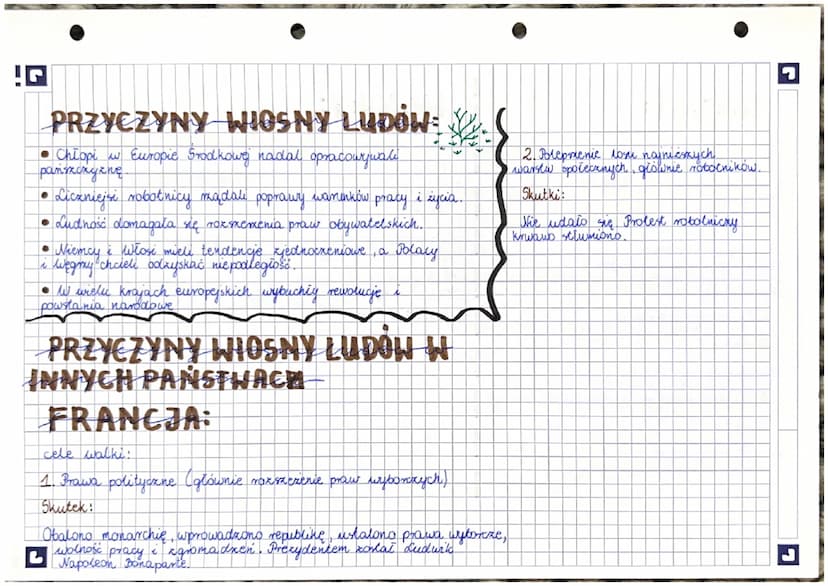 PRZYCZYNY WIOSNY LUDÓW:
• Chłopi w Europie Środkowej nadal opracowywali
pańszczyznę.
• Liczniejsi robotnicy żądali poprawy warunków pracy i życia.
• Ludność domagała się rozszerzenia praw obywatelskich.
• Niemcy i Włosi mieli tendencje zjednoczeniowe, a Polacy
i Węgrzy chcieli odzyskać niepodległość.
• W wielu krajach europejskich wybuchły rewolucje i
powstania narodowe
PRZYCZYNY WIOSNY LUDÓW W
INNYCH PAŃSTWACH
FRANCJA:
cele walki:
1. Prawa polityczne (głównie rozszerzenie praw wyborczych)
Skutek:
Obalono monarchię, wprowadzono republikę, ustalono prawa wyborcze,
wolność pracy i zgromadzeń. Prezydentem został Ludwik
Napoleon Bonaparte.
2. Polepszenie losu najniższych
warstw społecznych, głównie robotników.
Skutki:
Nie udało się. Protest robotniczy
krwawo stłumiono.